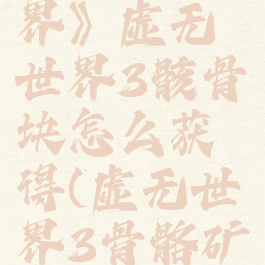 界》虚无
世界3骸骨
块怎么获
得(虚无世
界3骨骼矿